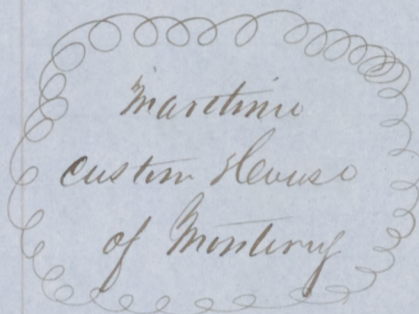 Maritime
custom House
of Monterey